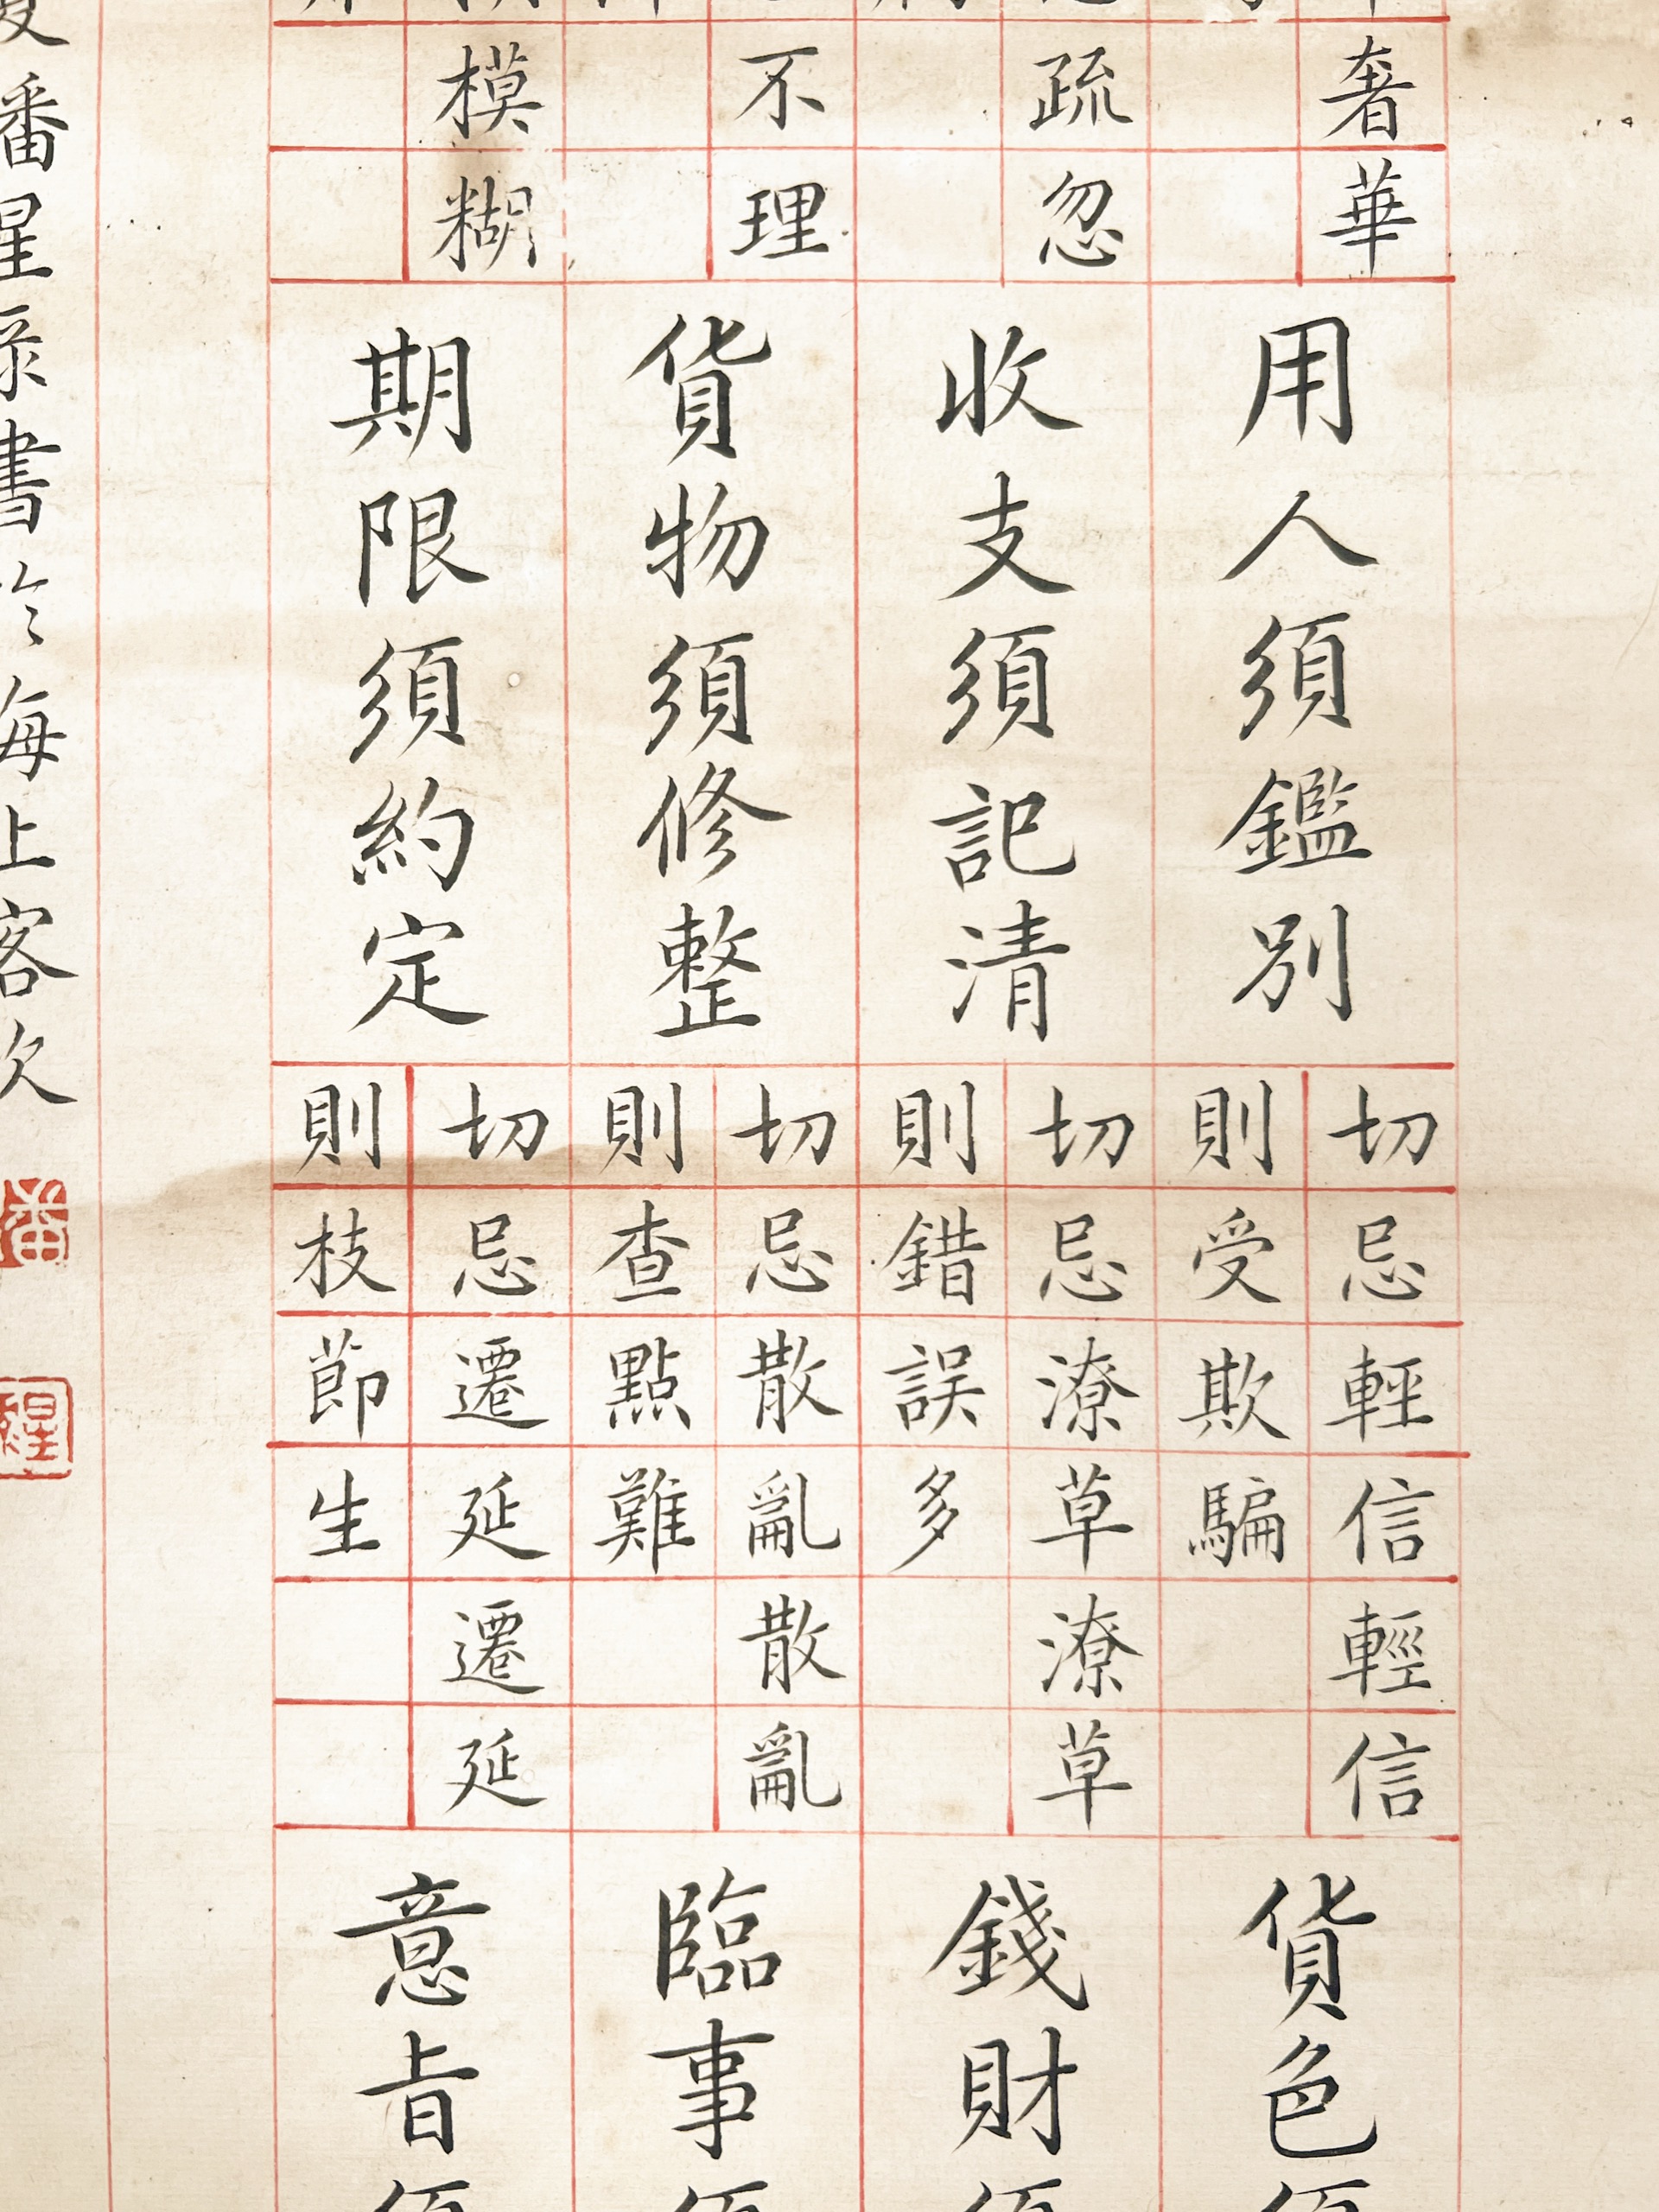 奢華
疏忽
不理
模糊
用人須鑑別
切忌輕信輕信
則受欺騙
收支須記清
切忌潦草潦草
則錯誤多
貨物須修整
切忌散亂散亂
則查點難
期限須約定
切忌遷延遷延
則枝節生
貨色須
錢財須
臨事須
意旨須
番星
書於海上客次